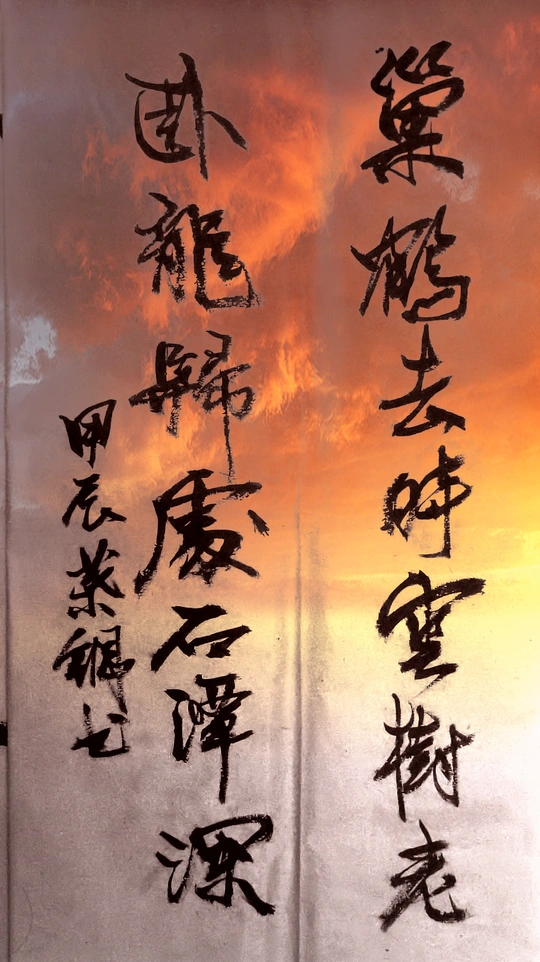 巢鶴去時雲樹老
卧龍歸處石潭深
甲辰葉